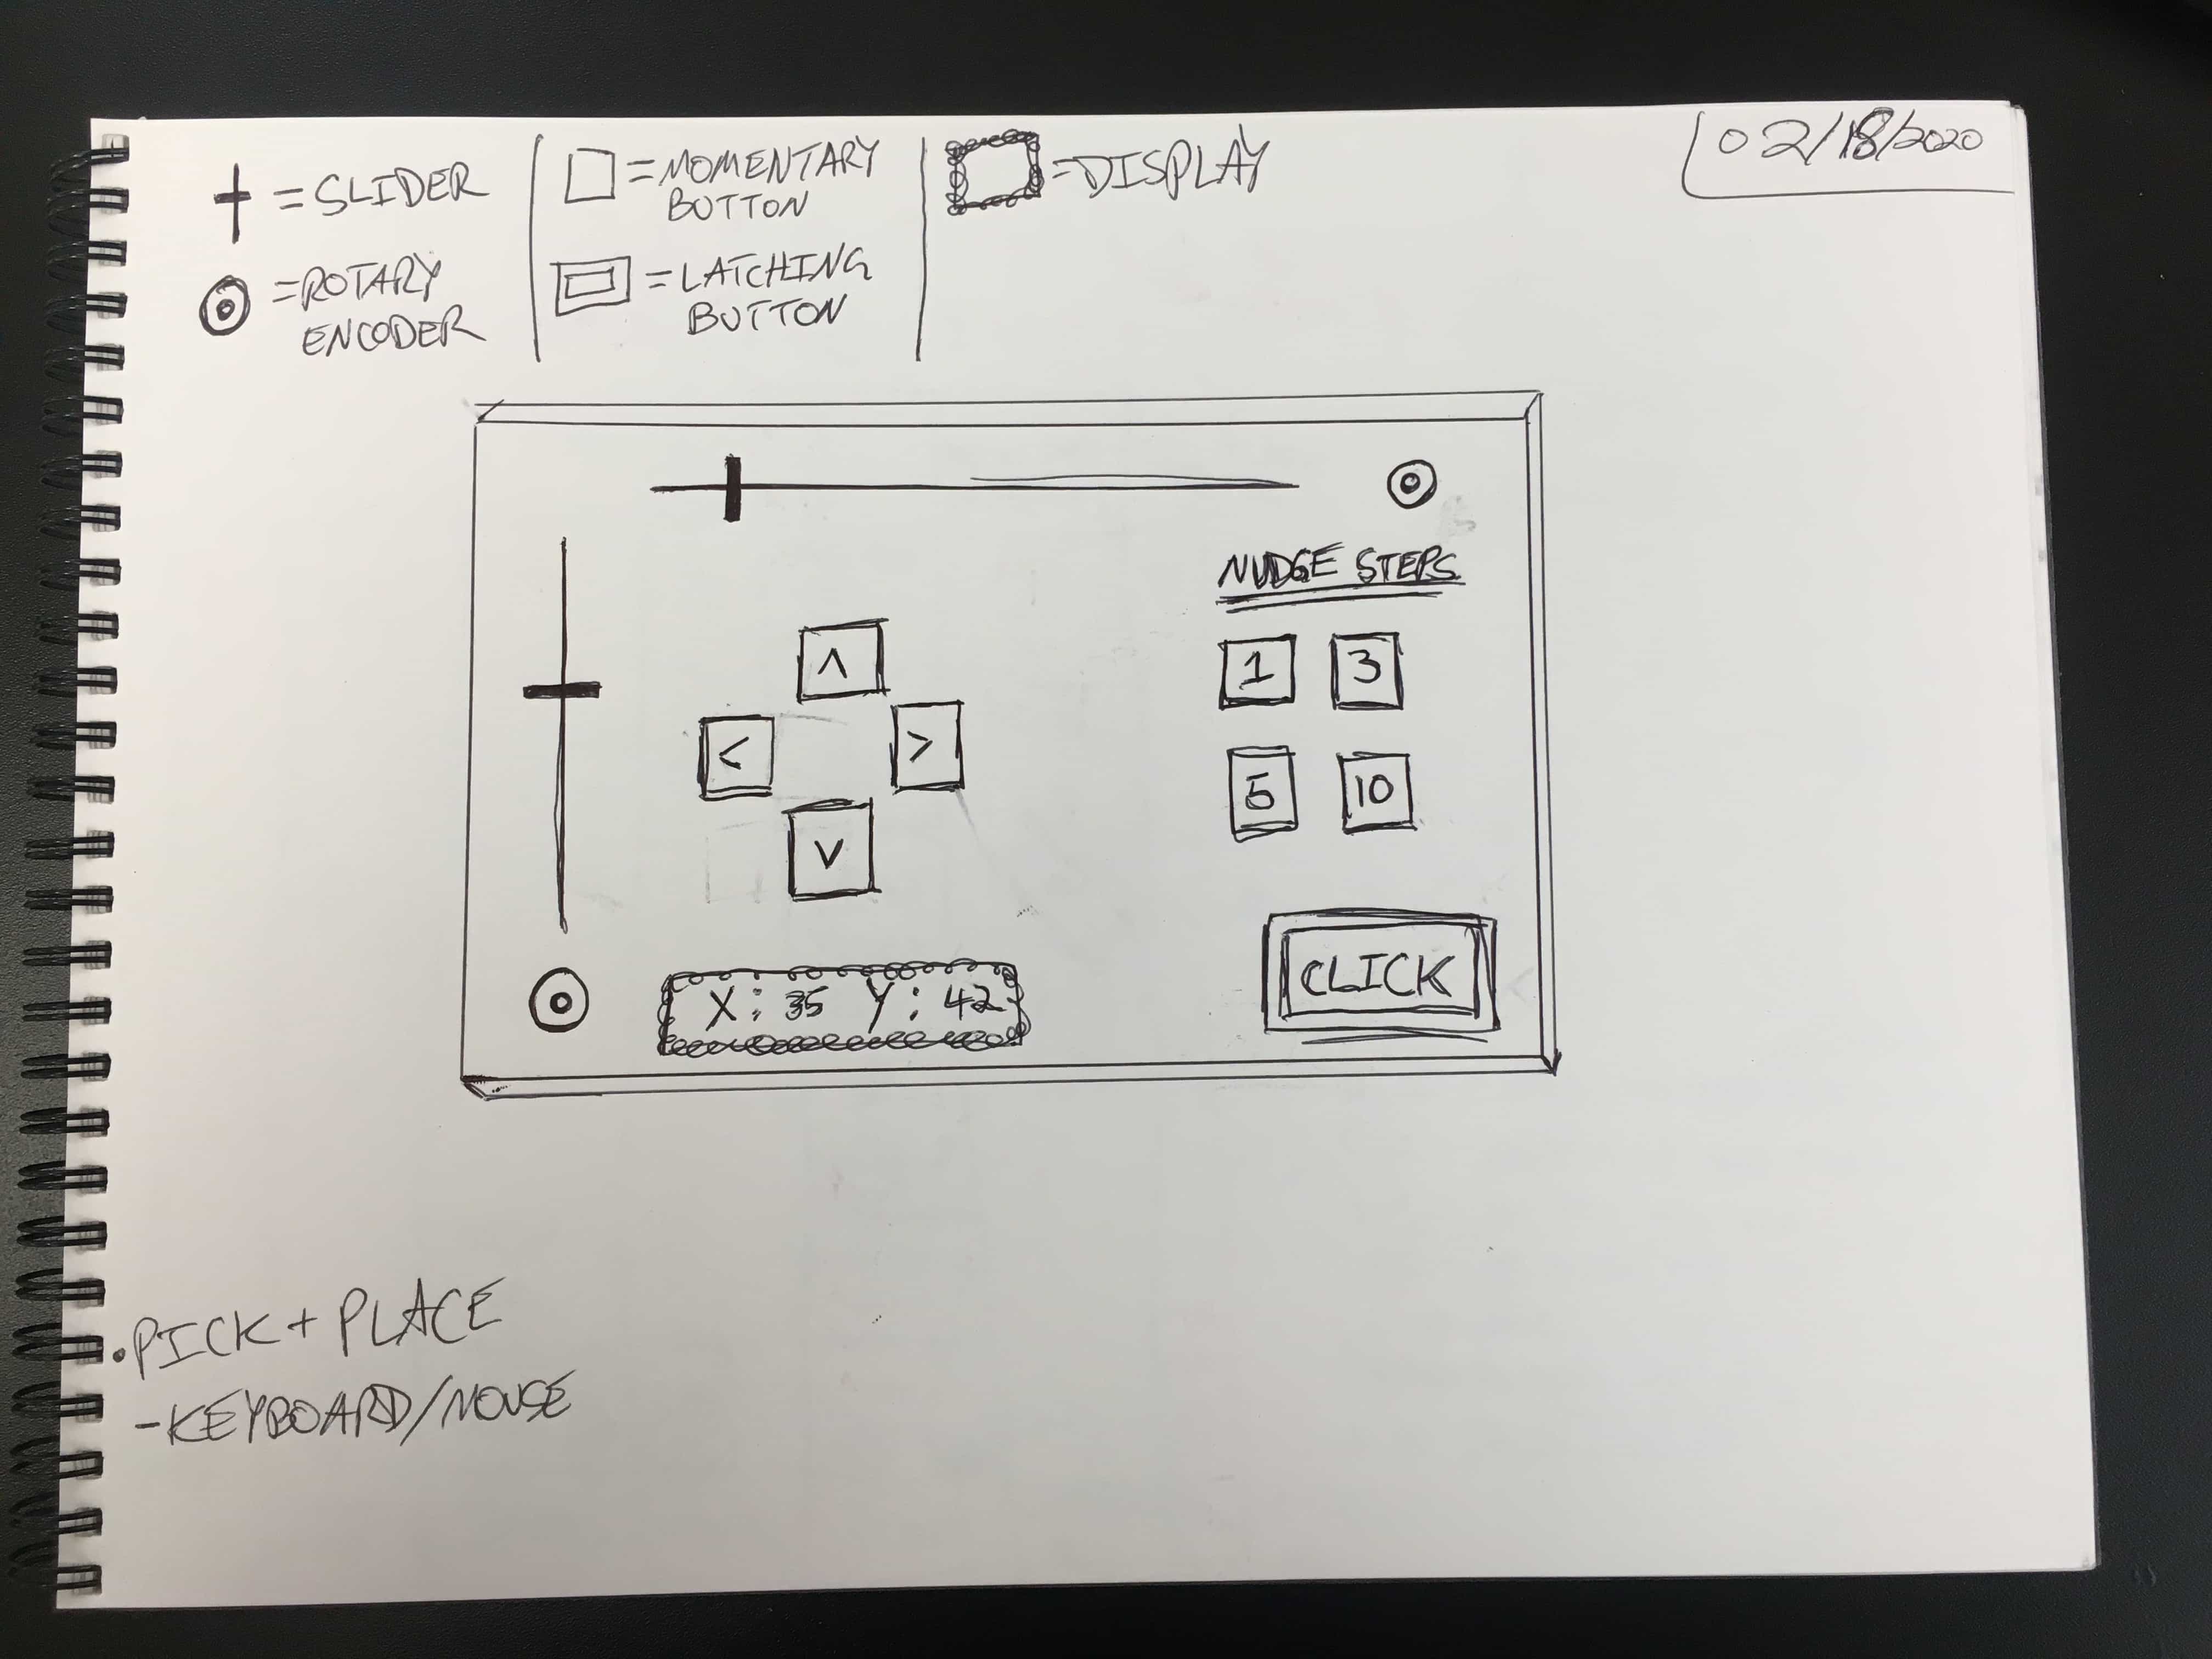 02/18/2020
= SLIDER
= ROTARY
ENCODER
= MOMENTARY
BUTTON
= LATCHING
BUTTON
= DISPLAY
NUDGE STEPS
^
< >
v
1 3
5 10
X: 35 Y: 42
CLICK
. PICK + PLACE
- KEYBOARD/MOUSE